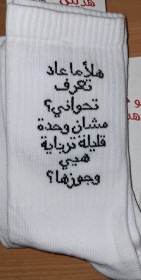 هلأ ما عاد
تعرف
تحواني؟
مشان وحدة
قليلة ترباية
هيي
وجوزها؟